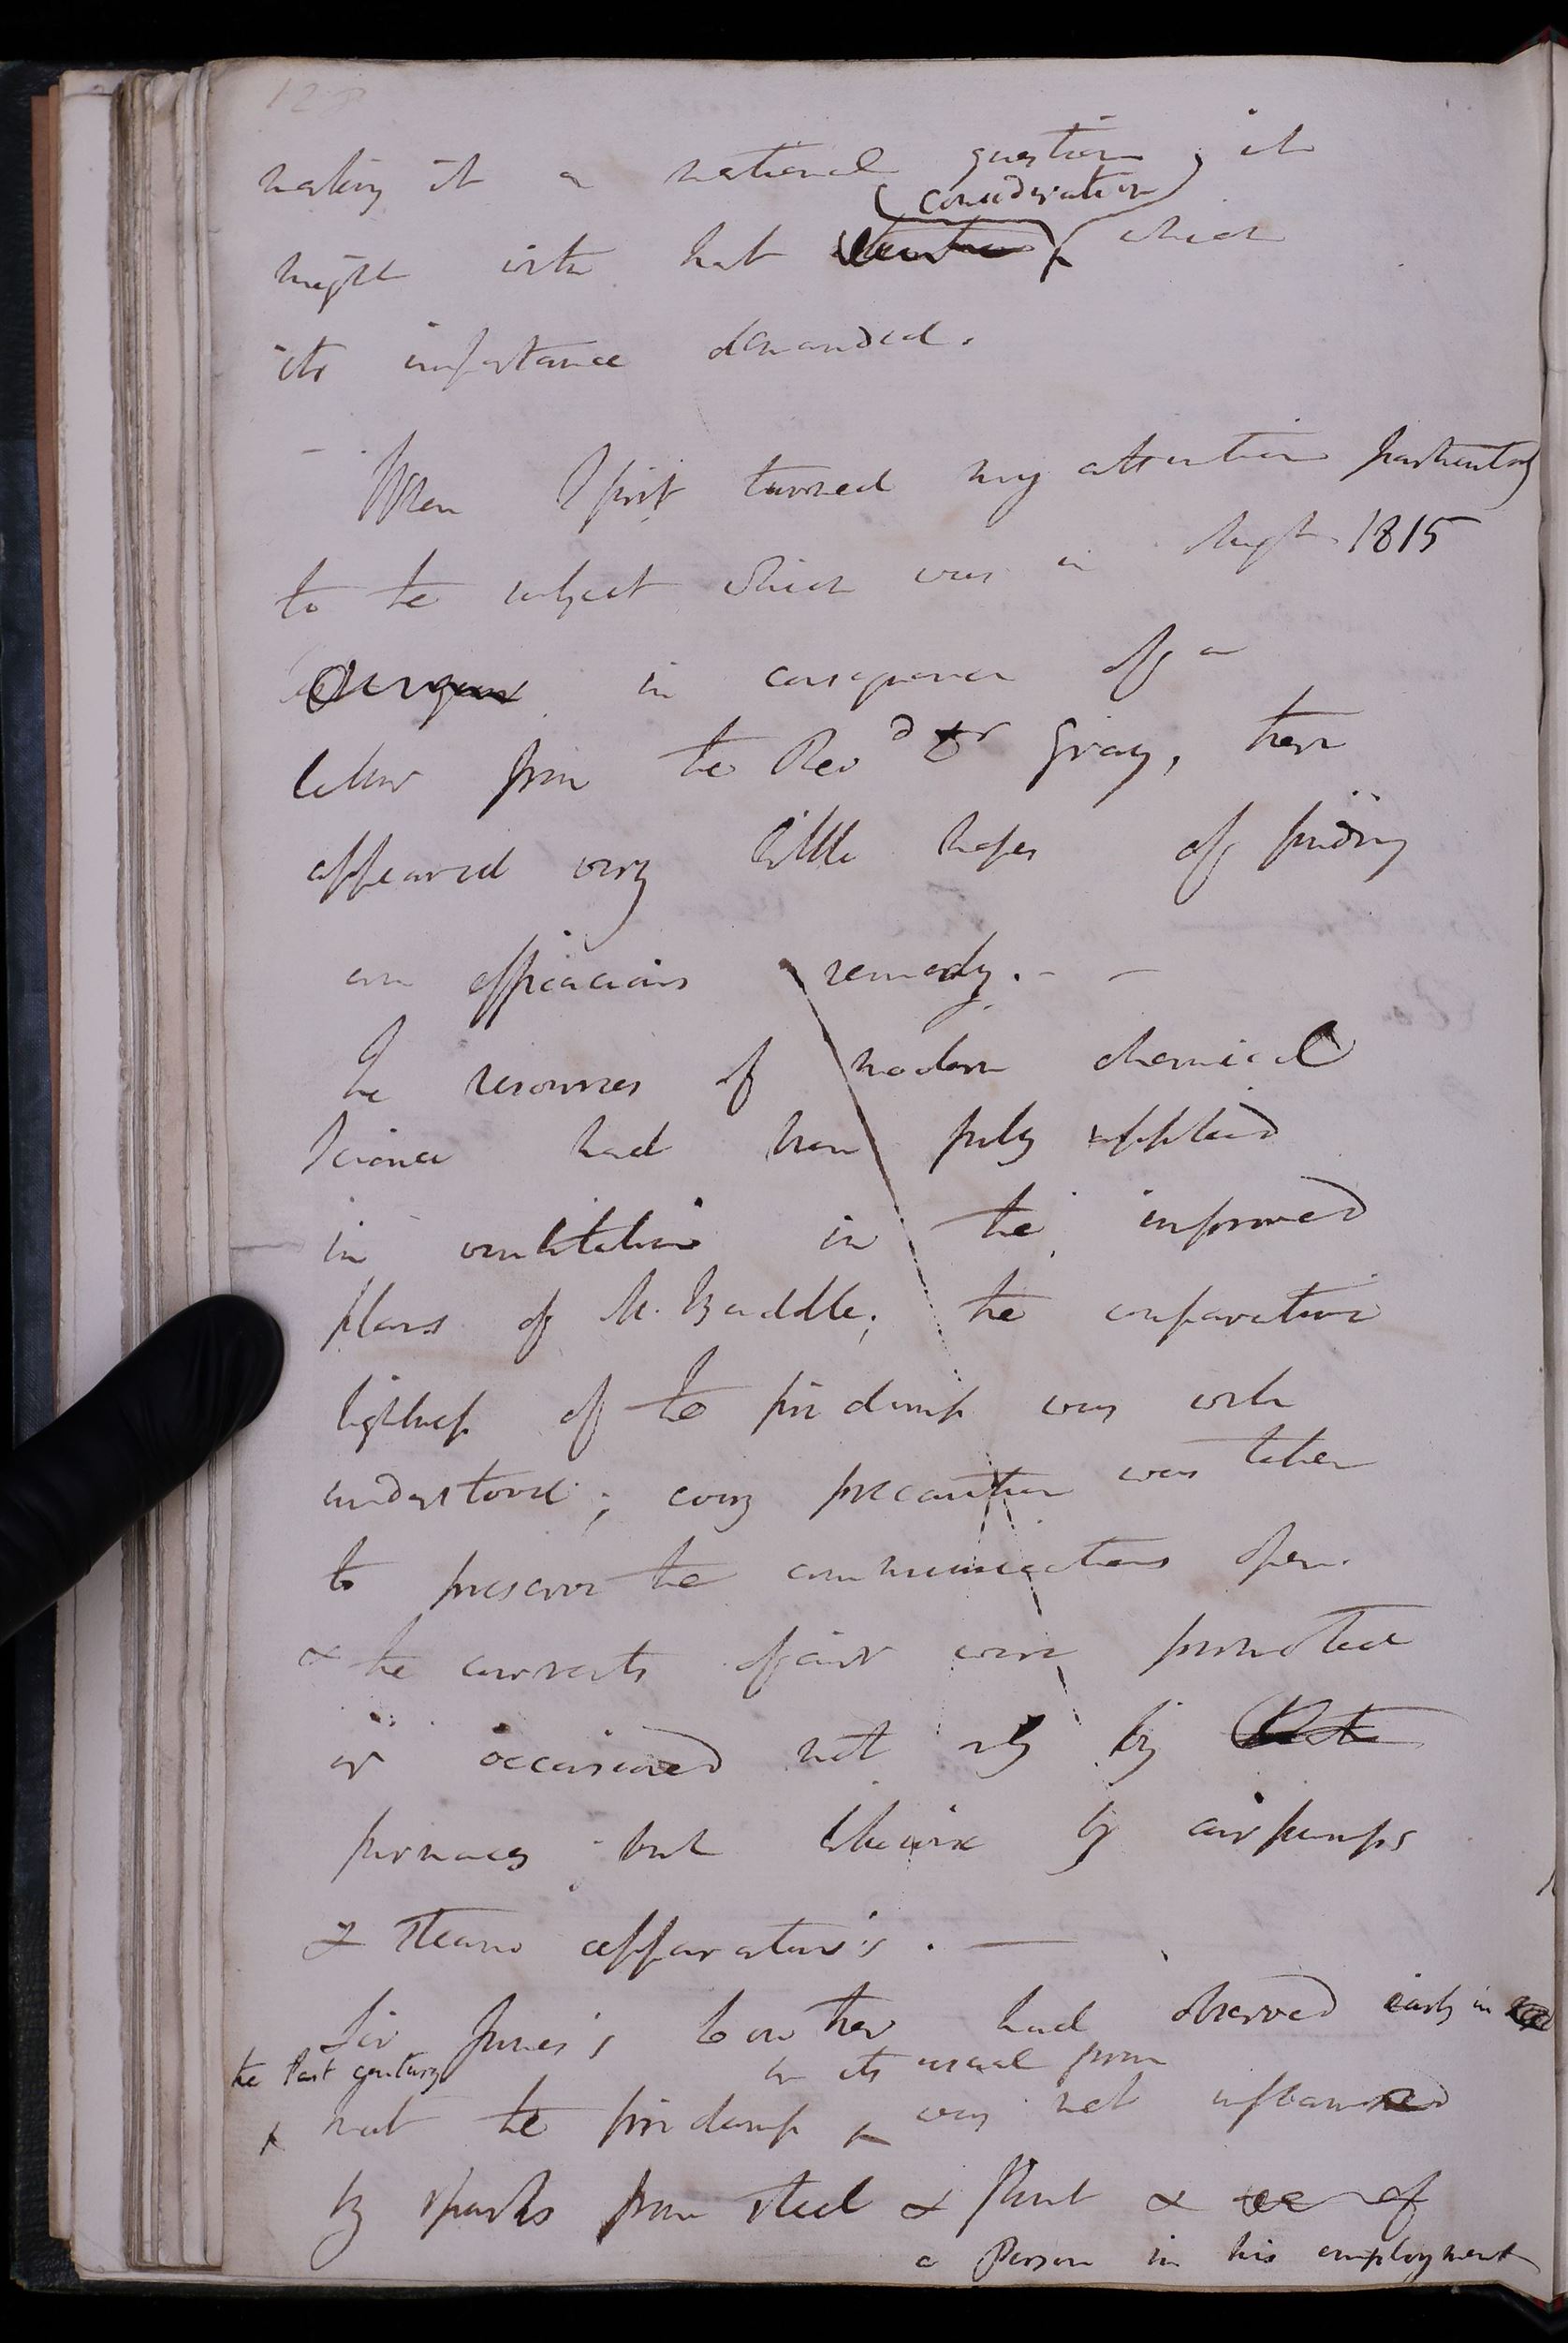 128
making it a national question, it
(consideration)
might with that which
its importance demanded.
When I first turned my attention particularly
to the subject which was in Augst 1815
in consequence of a
letter from the Revd Dr Gray, there
appeared very little hopes of finding
an efficacious remedy. -
The resources of modern chemical
Science had been fully applied
in ventilation in the improved
plans of Mr. Buddle; the comparative
lightness of the fire damp was well
understood; every precaution was taken
to preserve the communications open.
& the currents of air were promoted
or occasioned not only by
furnaces but likewise by air pumps
& steam apparatus's. —
Sir James's Lowther had observed early in
the last century in its usual form
x that the fire damp ^ was not inflamed
by sparks from steel & flint & of
a Person in his employment